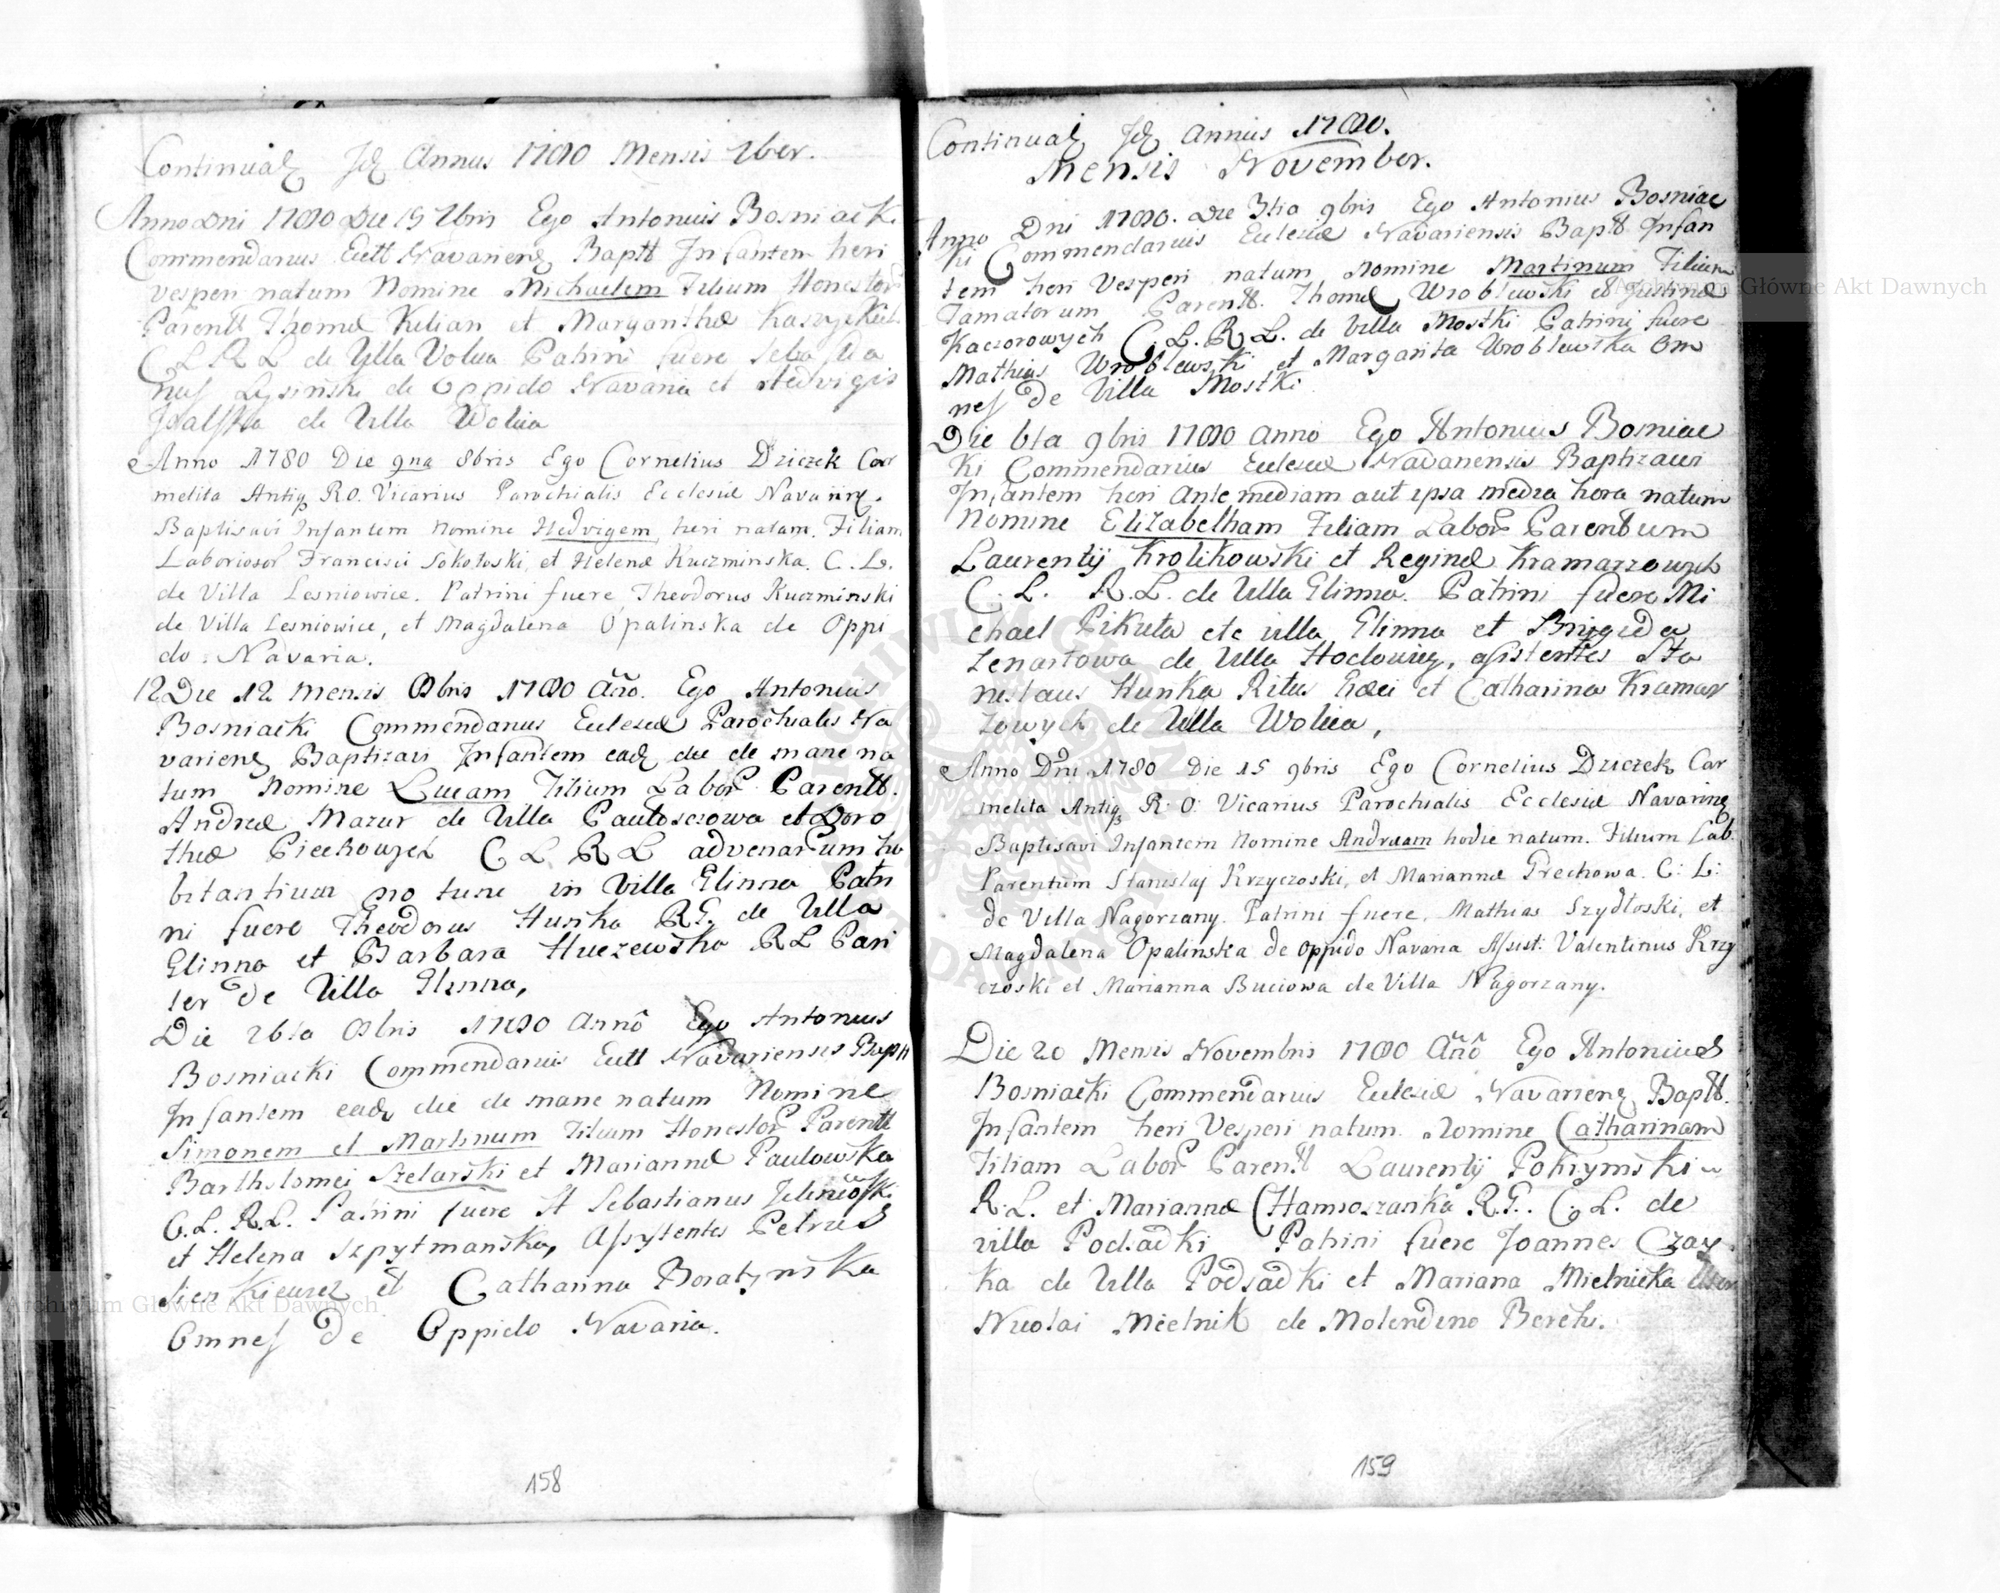 Continuat Id Annus 1780 Mensis 7ber.
Anno Dni 1780 Die 19 7bris Ego Antonius Bosniacki
Commendarius Eccll Navarieng Baptt Infantem heri
vesperi natum Nomine Michaelem Filium Honestor
Parentt Thomæ Kilian et Margarithæ
C L R L de Villa Volica Patrini fuere Sebastia
nus Lysinski de Oppido Navaria et Hedvigis
de Villa Wolica
Anno 1780 Die 9na 8bris Ego Cornelius Dziczek Car
melita Antiq R.O. Vicarius Parochialis Ecclesiæ Navarieng.
Baptisavi Infantem nomine Hedvigem, heri natam. Filiam
Laboriosor Francisci Sokołoski, et Helenæ Kuczminska. C. L.
de Villa Lesniowice. Patrini fuere, Theodorus Kuczminski
de Villa Lesniowice, et Magdalena Opalinska de Oppi
do: Navaria.
12 Die 12 Mensis 8bris 1780 Año. Ego Antonius
Bosniacki Commendarius Ecclesiæ Parochialis Na
varieng Baptizavi Infantem eadq die de mane na
tum Nomine Lucam Filium Labor Parentt.
Andreæ Mazur de Villa Pautosczowa et Doro
theæ Piechowych C L R L advenarum ha
bitantium po tunc in Villa Glinna Patri
ni fuere Theodorus Hunka R G, de Villa
Glinna et Barbara Huczewska R L Pari
ter de Villa Glinna,
Die 26ta 8bris 1780 Anno Ego Antonius
Bosniacki Commendarius Eccll Navariensis Baptt
Infantem eadq die de mane natum Nomine
Simonem et Martinum Filium Honestor Parentt
Bartholomei Szelarski et Mariannæ Paulowska
C.L. R.L. Patrini fuere H Sebastianus
et Helena Szpytmanska, Assystentes Petrus
et Catharina Boratynska
Omnes de Oppido Navaria.
158
Continuat Id Annus 1780.
Mensis November.
Anno Dni 1780. Die 3tia 9bris Ego Antonius Bosniac
ki Commendarius Ecclesiæ Navariensis Baptt Infan
tem heri Vesperi natum Nomine Martinum Filium
Famatorum Parentt. Thomæ Wroblewski et Justinæ
Kaczorowych C. L. R L. de Villa Mostki Patrini fuere
Mathias Wroblewski et Margarita Wroblewska Om
nes de Villa Mostki.
Die 6ta 9bris 1780 Anno Ego Antonius Bosniac
ki Commendarius Ecclesiæ Navariensis Baptizavi
Infantem heri ante mediam aut ipsa media hora natum
Nomine Elizabetham Filiam Labor Parentum
Laurentij Krolikowski et Reginæ Kramarzowych
C. L. R. L. de Villa Glinna. Patrini fuere Mi
chael Pikuta de villa Glinna et Brigida
Lenartowa de Villa Hodowicz, assistentes Sta
nislaus Hunka Ritus Græci et Catharina Kramar
zowych de Villa Wolica,
Anno Dni 1780 Die 15 9bris Ego Cornelius Dziczek Car
melita Antiq R: O: Vicarius Parochialis Ecclesiæ Navarieng
Baptisavi Infantem nomine Andream hodie natum. Filium Lab:
Parentum Stanislaj Krzyczoski, et Mariannæ Prechowa. C: L:
de Villa Nagorzany. Patrini fuere, Mathias Szydłoski, et
Magdalena Opalinska de oppido Navaria Assist: Valentinus Krzy
czoski et Marianna Buciowa de Villa Nagorzany.
Die 20 Mensis Novembris 1780 Año Ego Antonius
Bosniacki Commendarius Ecclesiæ Navarieng Baptt.
Infantem heri Vesperi natum Nomine Catharinam
Filiam Labor Parentt Laurentij Pokrymski
R. L. et Mariannæ Chamoszanka R.G. C. L. de
villa Podsadki Patrini fuere Joannes Czay
ka de Villa Podsadki et Mariana Mielnicka
Nicolai Mielnik de Molendino Berehi.
159
Archiwum Główne Akt Dawnych
Archiwum Główne Akt Dawnych